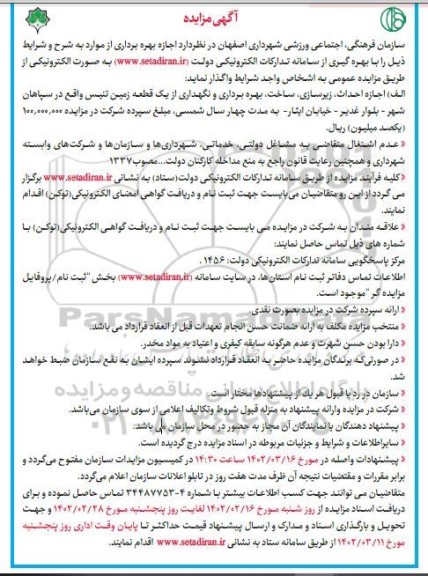 آگهی مزایده
سازمان فرهنگی، اجتماعی ورزشی شهرداری اصفهان در نظردارد اجازه بهره برداری از موارد به شرح و شرایط
ذیل را با بهره گیری از سامانه تدارکات الکترونیکی دولت (www.setadiran.ir) به صورت الکترونیکی از
طریق مزایده عمومی به اشخاص واجد شرایط واگذار نماید:
الف) اجازه احداث، زیرسازی، ساخت، بهره برداری و نگهداری از یک قطعه زمین تنیس واقع در سپاهان
شهر - بلوار غدیر - خیابان ایثار- به مدت چهار سال شمسی، مبلغ سپرده شرکت در مزایده ۱۰۰,۰۰۰,۰۰۰
(یکصد میلیون) ریال.
* عدم اشتغال متقاضی به مشاغل دولتی، خدماتی، شهرداری‌ها و سازمان‌ها و شرکت‌های وابسته
شهرداری و همچنین رعایت قانون راجع به منع مداخله کارکنان دولت...مصوب ۱۳۳۷
* کلیه فرآیند مزایده از طریق سامانه تدارکات الکترونیکی دولت(ستاد) به نشانی www.setadiran.ir برگزار
می گردد از این رو متقاضیان می‌بایست جهت ثبت نام و دریافت گواهی امضای الکترونیکی(توکن) اقدام
نمایند.
* علاقه مندان به شرکت در مزایده می بایست جهت ثبت نام و دریافت گواهی الکترونیکی(توکن) با
شماره های ذیل تماس حاصل نمایند:
مرکز پاسخگویی سامانه تدارکات الکترونیکی دولت: ۱۴۵۶ .
اطلاعات تماس دفاتر ثبت نام استان‌ها، در سایت سامانه (www.setadiran.ir) بخش "ثبت نام/ پروفایل
مزایده گر" موجود است.
* ارائه سپرده شرکت در مزایده بصورت نقدی.
* منتخب مزایده مکلف به ارائه ضمانت حسن انجام تعهدات قبل از انعقاد قرارداد می باشد.
* دارا بودن حسن شهرت و عدم هرگونه سابقه کیفری و اعتیاد به مواد مخدر.
* در صورتی‌که برندگان مزایده حاضر به انعقاد قرارداد نشوند سپرده ایشان به نفع سازمان ضبط خواهد
شد.
* سازمان در رد یا قبول هر یک از پیشنهادها مختار است.
* شرکت در مزایده وارائه پیشنهاد به منزله قبول شروط وتکالیف اعلامی از سوی سازمان می‌باشد.
* پیشنهاد دهندگان یا نمایندگان آن مجاز به حضور در محل سازمان می باشد:
* سایر اطلاعات و شرایط و جزئیات مربوطه در اسناد مزایده درج گردیده است.
* پیشنهادات واصله در مورخ ۱۴۰۲/۰۳/۱۶ ساعت ۱۴:۳۰ در کمیسیون مزایدات سازمان مفتوح می‌گردد و
برابر مقررات و مقتضیات نتیجه آن ظرف مدت هفت روز در تابلو اعلانات سازمان اعلام می‌گردد.
متقاضیان می توانند جهت کسب اطلاعات بیشتر با شماره ۴-۳۴۴۸۷۷۵۳ تماس حاصل نموده و برای
دریافت اسناد مزایده از روز شنبه مورخ ۱۴۰۲/۰۲/۱۶ لغایت روز پنجشنبه مورخ ۱۴۰۲/۰۲/۲۸ و جهت
تحویل و بارگذاری اسناد و مدارک و ارسال پیشنهاد قیمت حداکثر تا پایان وقت اداری روز پنجشنبه
مورخ ۱۴۰۲/۰۳/۱۱ از طریق سامانه ستاد به نشانی www.setadiran.ir اقدام نمایند.